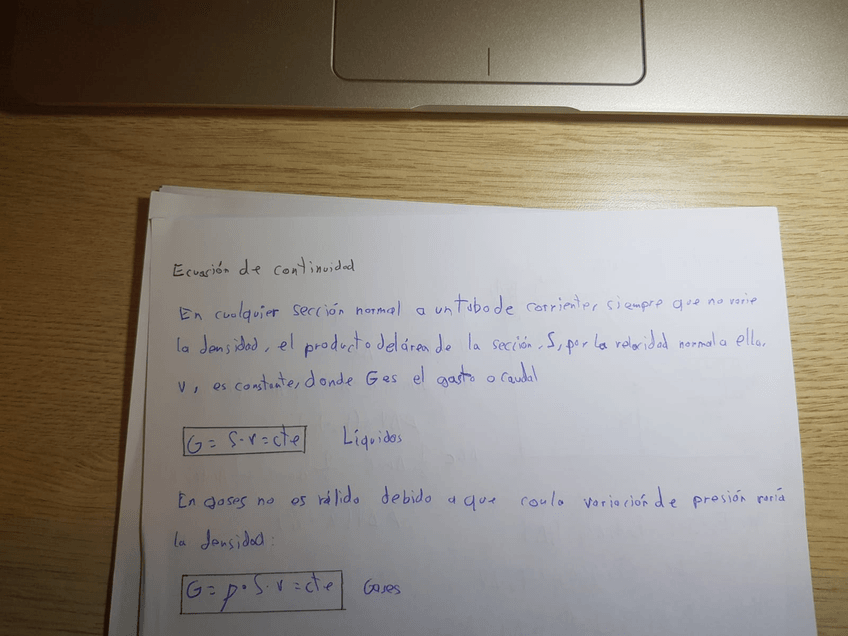 Ecuación de continuidad
En cualquier sección normal a un tubo de corriente, siempre que no varie
la densidad, el producto del área de la sección, S, por la velocidad normal a ella,
v, es constante, donde G es el gasto o caudal
G = S·v = cte Líquidos
En gases no es válido debido a que con la variación de presión varía
la densidad:
G = ρ·S·v = cte Gases